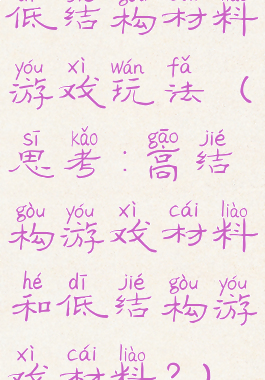 低结构材料
yóu xì wán fǎ
游戏玩法（
sī kǎo gāo jié
思考：高结
gòu yóu xì cái liào
构游戏材料
hé dī jié gòu yóu
和低结构游
xì cái liào
戏材料？）